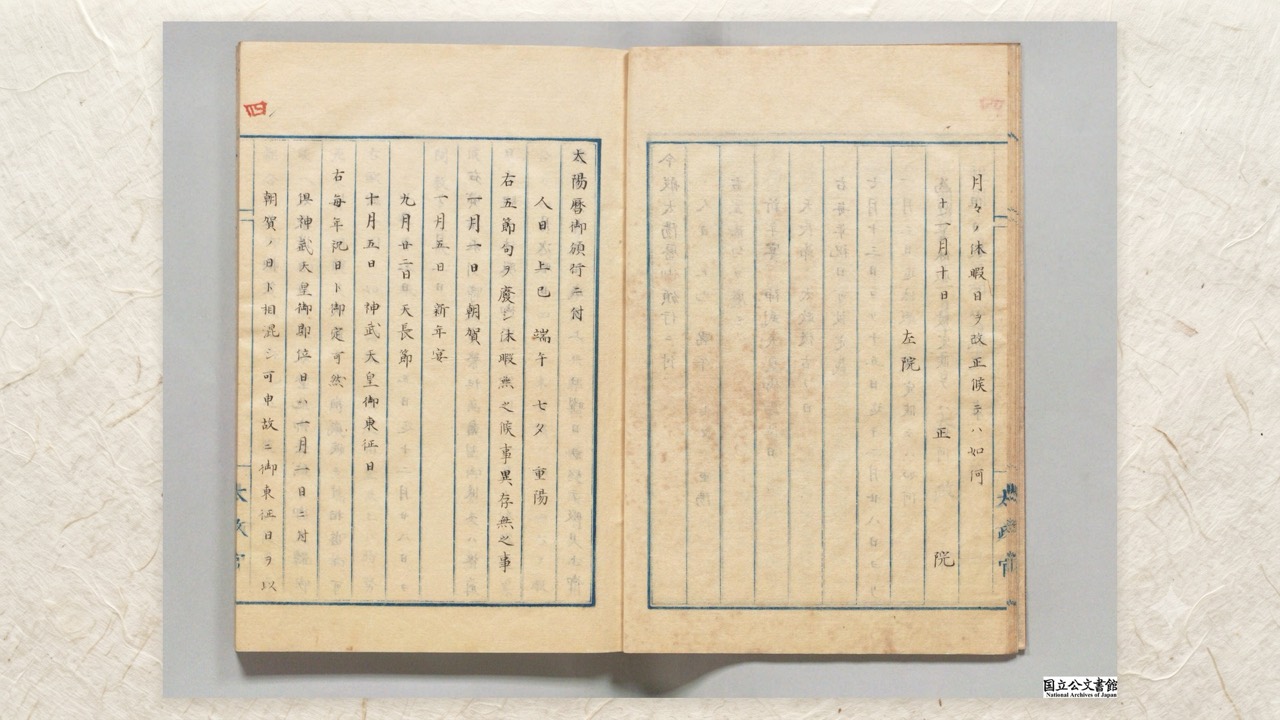 月々ノ休暇日ヲ改正候テハ如何
十一月十日
正院
左院
太政官
太陽暦御頒行ニ付
人日上巳 端午 七夕 重陽
右五節句ヲ廃シ休暇無之候事異存無之事
一月一日 朝賀
一月五日 新年宴
九月廿二日 天長節
十月五日 神武天皇御東征日
右毎年祝日ト御定可然
但神武天皇御即位日ハ一月一日ニ付
朝賀ノ日ト相混シ可申故ニ御東征日ヲ以
太政官
四
国立公文書館
National Archives of Japan